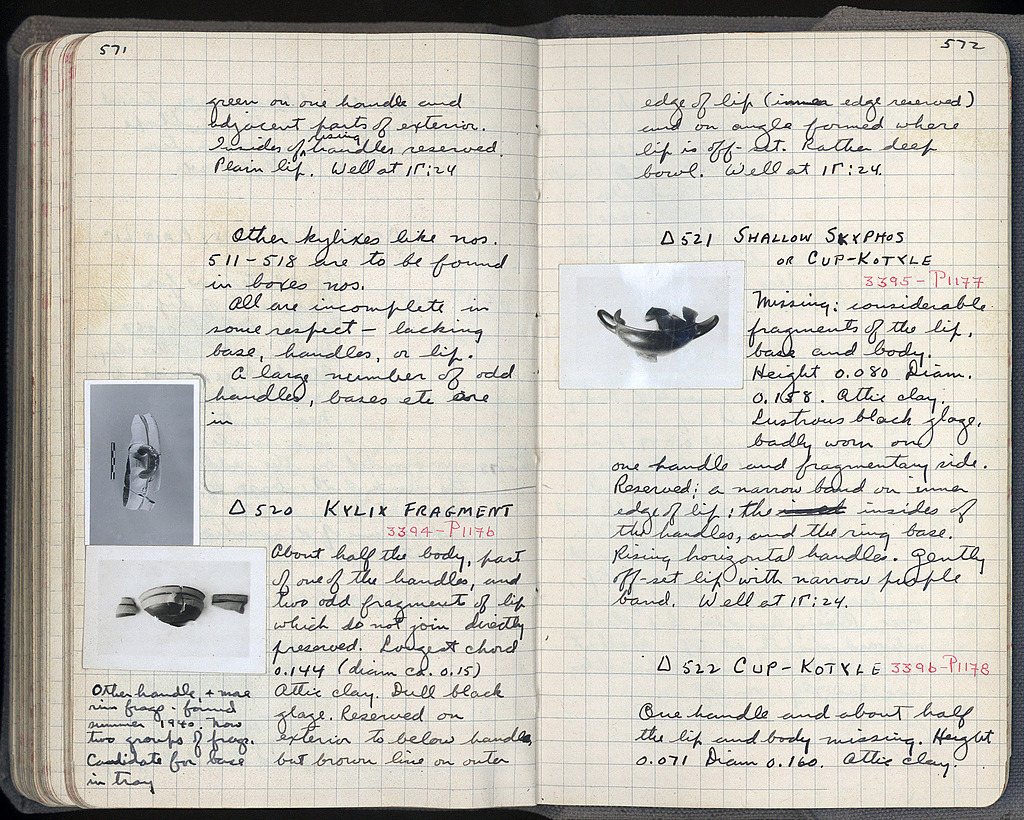 571
green on one handle and
adjacent parts of exterior.
Insides of rising handles reserved.
Plain lip. Well at ΙΓ:24
Other kylixes like nos.
511-518 are to be found
in boxes nos.
All are incomplete in
some respect - lacking
base, handles, or lip.
A large number of odd
handles, bases etc are
in
Δ 520 KYLIX FRAGMENT
3394-P1176
About half the body, part
of one of the handles, and
two odd fragments of lip
which do not join directly
preserved. Longest chord
0.144 (diam ca. 0.15)
Attic clay. Dull black
glaze. Reserved on
exterior to below handles,
but brown line on outer
Other handle, + more
rim frags. found
summer 1940. Now
two groups of frags.
Candidate for base
in tray
572
edge of lip (inner edge reserved)
and on angle formed where
lip is off-set. Rather deep
bowl. Well at ΙΓ:24.
Δ 521 SHALLOW SKYPHOS
OR CUP-KOTYLE
3395-P1177
Missing: considerable
fragments of the lip,
base and body.
Height 0.080 Diam.
0.158. Attic clay.
Lustrous black glaze,
badly worn on
one handle and fragmentary side.
Reserved: a narrow band on inner
edge of lip; the insides of
the handles, and the ring base.
Rising horizontal handles. Gently
off-set lip with narrow purple
band. Well at ΙΓ:24.
Δ 522 CUP-KOTYLE 3396-P1178
One handle and about half
the lip and body missing. Height
0.071 Diam 0.160. Attic clay.